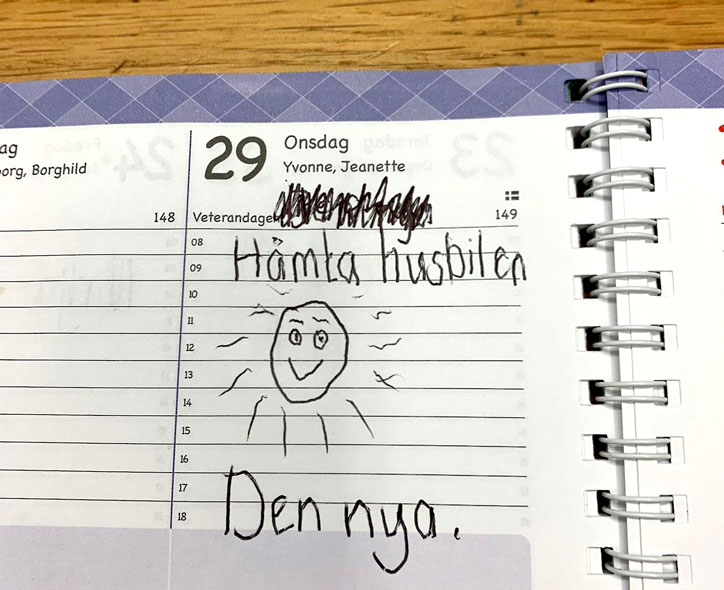 ag
org, Borghild
148
29
Onsdag
Yvonne, Jeanette
Veterandagen
149
08
Hämta husbilen
09
10
11
12
13
14
15
16
17
Den nya.
18